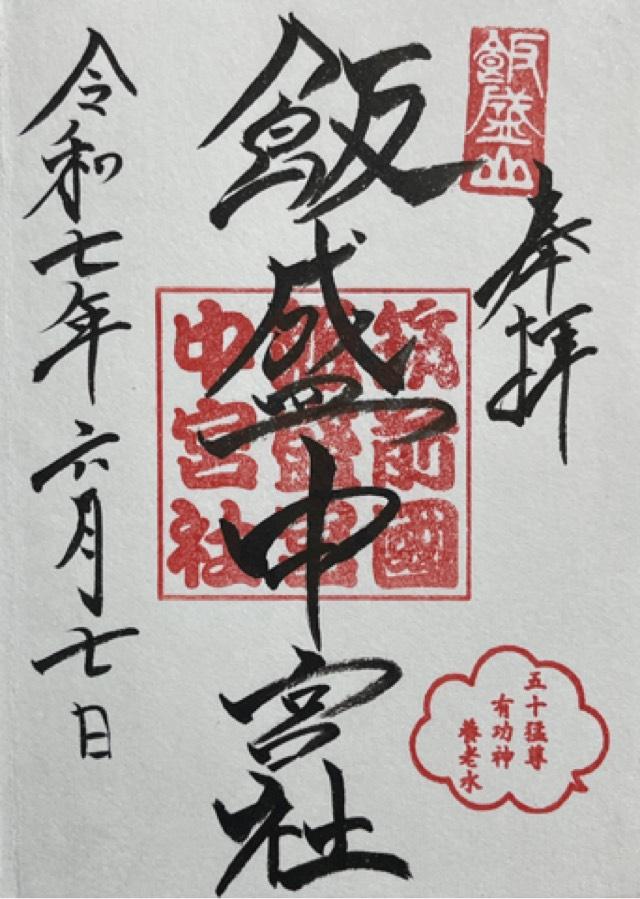 飯盛山
奉拝
飯盛中宮社
筑前國
飯盛山
中宮社
令和七年六月七日
五十猛尊
有功神
養老水